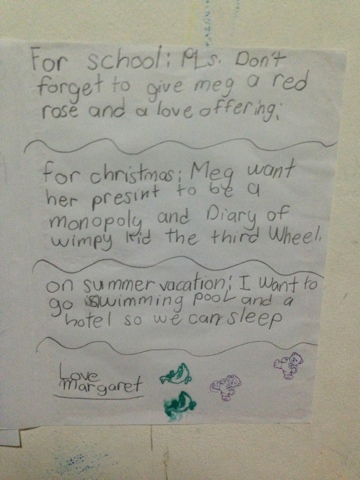 For school; Pls. Don't
forget to give meg a red
rose and a love offering;
for christmas; Meg want
her presint to be a
monopoly and Diary of
wimpy kid the third Wheel.
on summer vacation; I want to
go swimming pool and a
hotel so we can sleep
Love
margaret